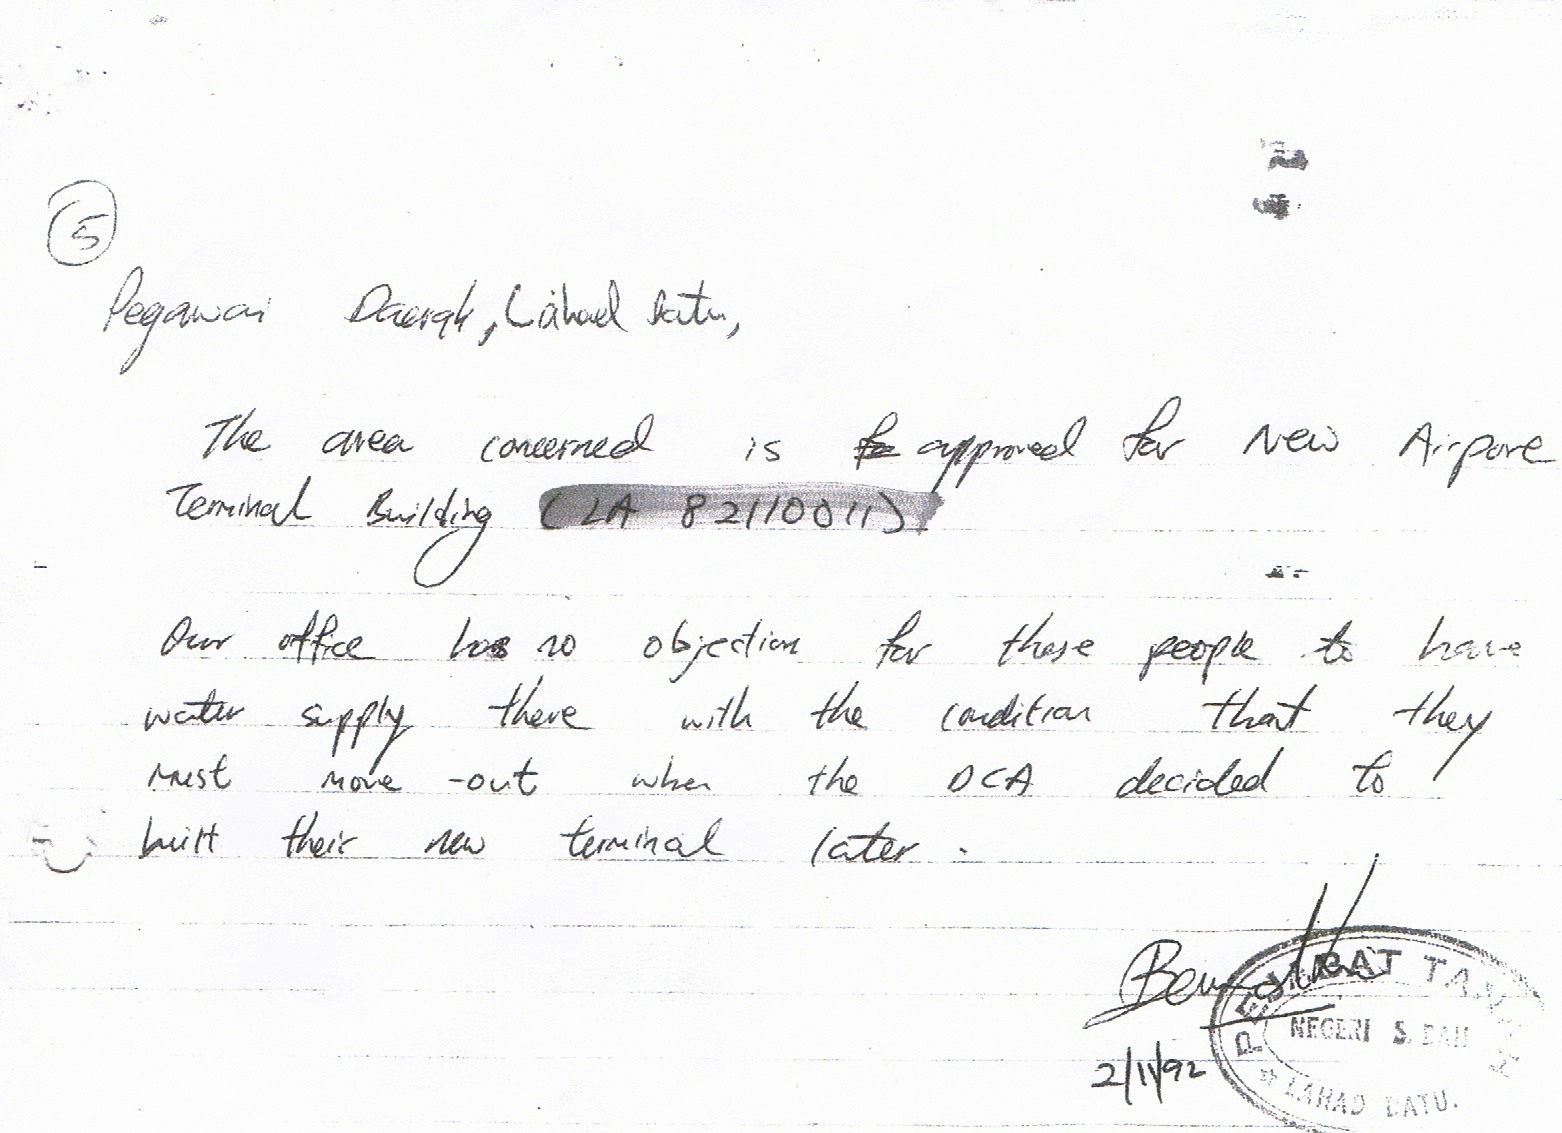 5
Pegawai Daerah, Lahad Datu,
The area concerned is approved for New Airpore
Terminal Building (LA 82110011).
Our office has no objection for these people to have
water supply there with the condition that they
must move-out when the DCA decided to
built their new terminal later.
PEJABAT TANAH
NEGERI SABAH
LAHAD DATU.
2/11/92